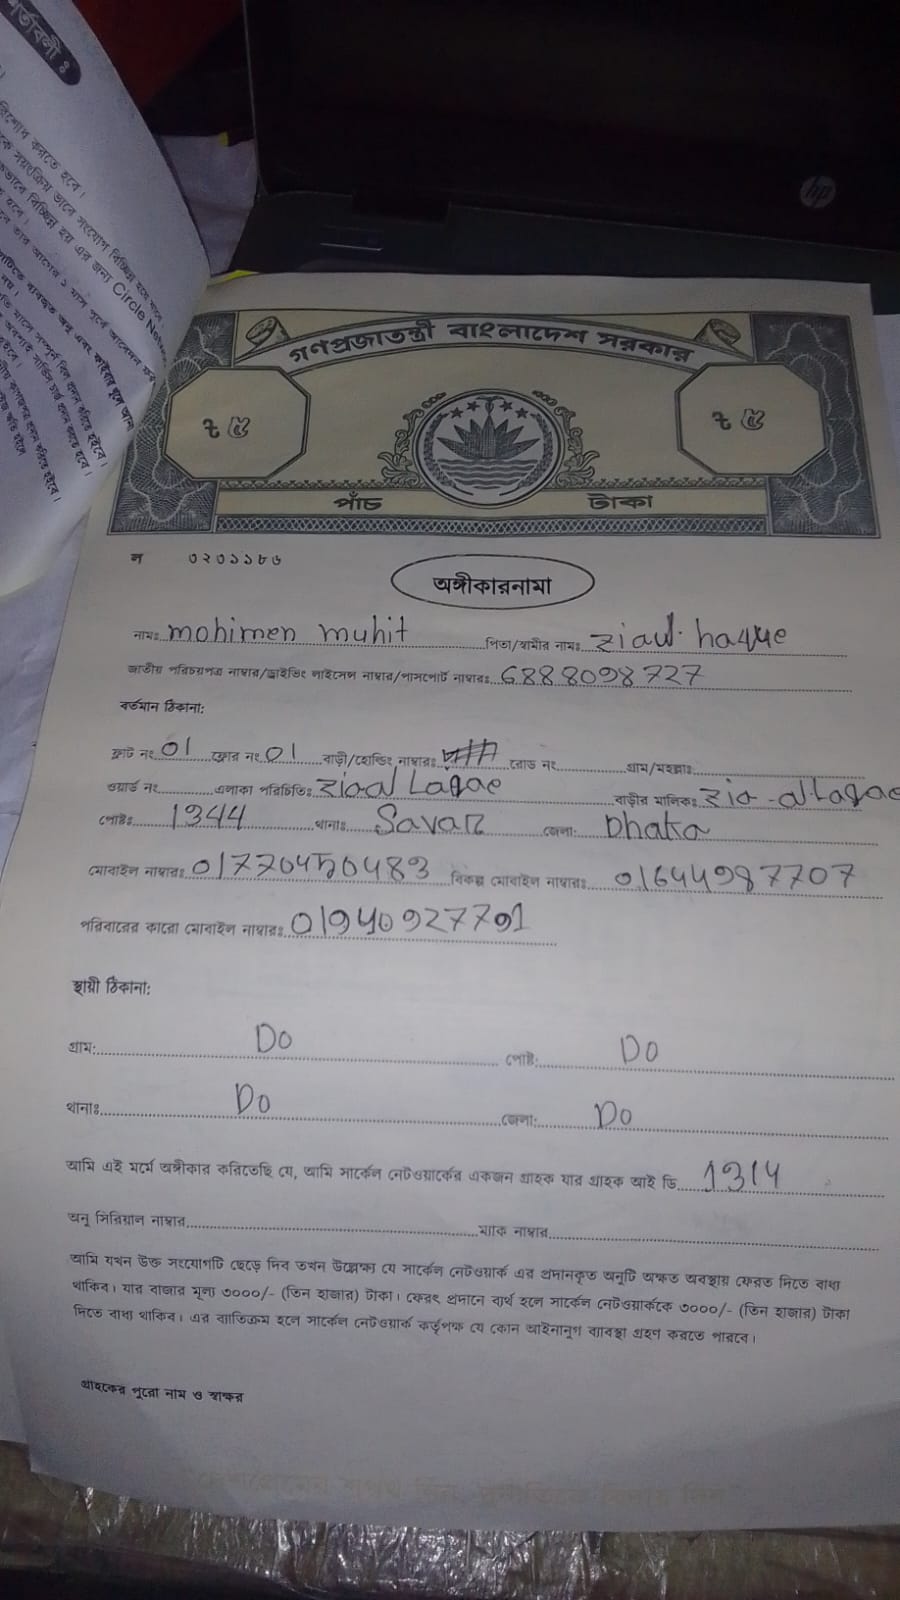 শর্তাবলী ঃ
রিশোধ করতে হবে।
Circle Netw
hp
গণপ্রজাতন্ত্রী বাংলাদেশ সরকার
৳ ৫ ৳ ৫
পাঁচ টাকা
ন ৩২৩১১৮৬
অঙ্গীকারনামা
নামঃ mohimen muhit পিতা/স্বামীর নামঃ ziaul haque
জাতীয় পরিচয়পত্র নাম্বার/ড্রাইভিং লাইসেন্স নাম্বার/পাসপোর্ট নাম্বারঃ 6888098727
বর্তমান ঠিকানা:
ফ্লাট নং 01 ফ্লোর নং 01 বাড়ী/হোল্ডিং নাম্বারঃ রোড নং গ্রাম/মহল্লাঃ
ওয়ার্ড নং এলাকা পরিচিতিঃ বাড়ীর মালিকঃ
পোষ্টঃ 1344 থানাঃ Savar জেলাঃ Dhaka
মোবাইল নাম্বারঃ 01770450483 বিকল্প মোবাইল নাম্বারঃ 01644987707
পরিবারের কারো মোবাইল নাম্বারঃ 01940927791
স্থায়ী ঠিকানা:
গ্রাম: Do পোষ্ট: Do
থানাঃ Do জেলা: Do
আমি এই মর্মে অঙ্গীকার করিতেছি যে, আমি সার্কেল নেটওয়ার্কের একজন গ্রাহক যার গ্রাহক আই ডি 1314
অনু সিরিয়াল নাম্বার ম্যাক নাম্বার
আমি যখন উক্ত সংযোগটি ছেড়ে দিব তখন উল্লেক্ষ্য যে সার্কেল নেটওয়ার্ক এর প্রদানকৃত অনুটি অক্ষত অবস্থায় ফেরত দিতে বাধ্য
থাকিব। যার বাজার মূল্য ৩০০০/- (তিন হাজার) টাকা। ফেরৎ প্রদানে ব্যর্থ হলে সার্কেল নেটওয়ার্ককে ৩০০০/- (তিন হাজার) টাকা
দিতে বাধ্য থাকিব। এর ব্যাতিক্রম হলে সার্কেল নেটওয়ার্ক কর্তৃপক্ষ যে কোন আইনানুগ ব্যাবস্থা গ্রহণ করতে পারবে।
গ্রাহকের পুরো নাম ও স্বাক্ষর